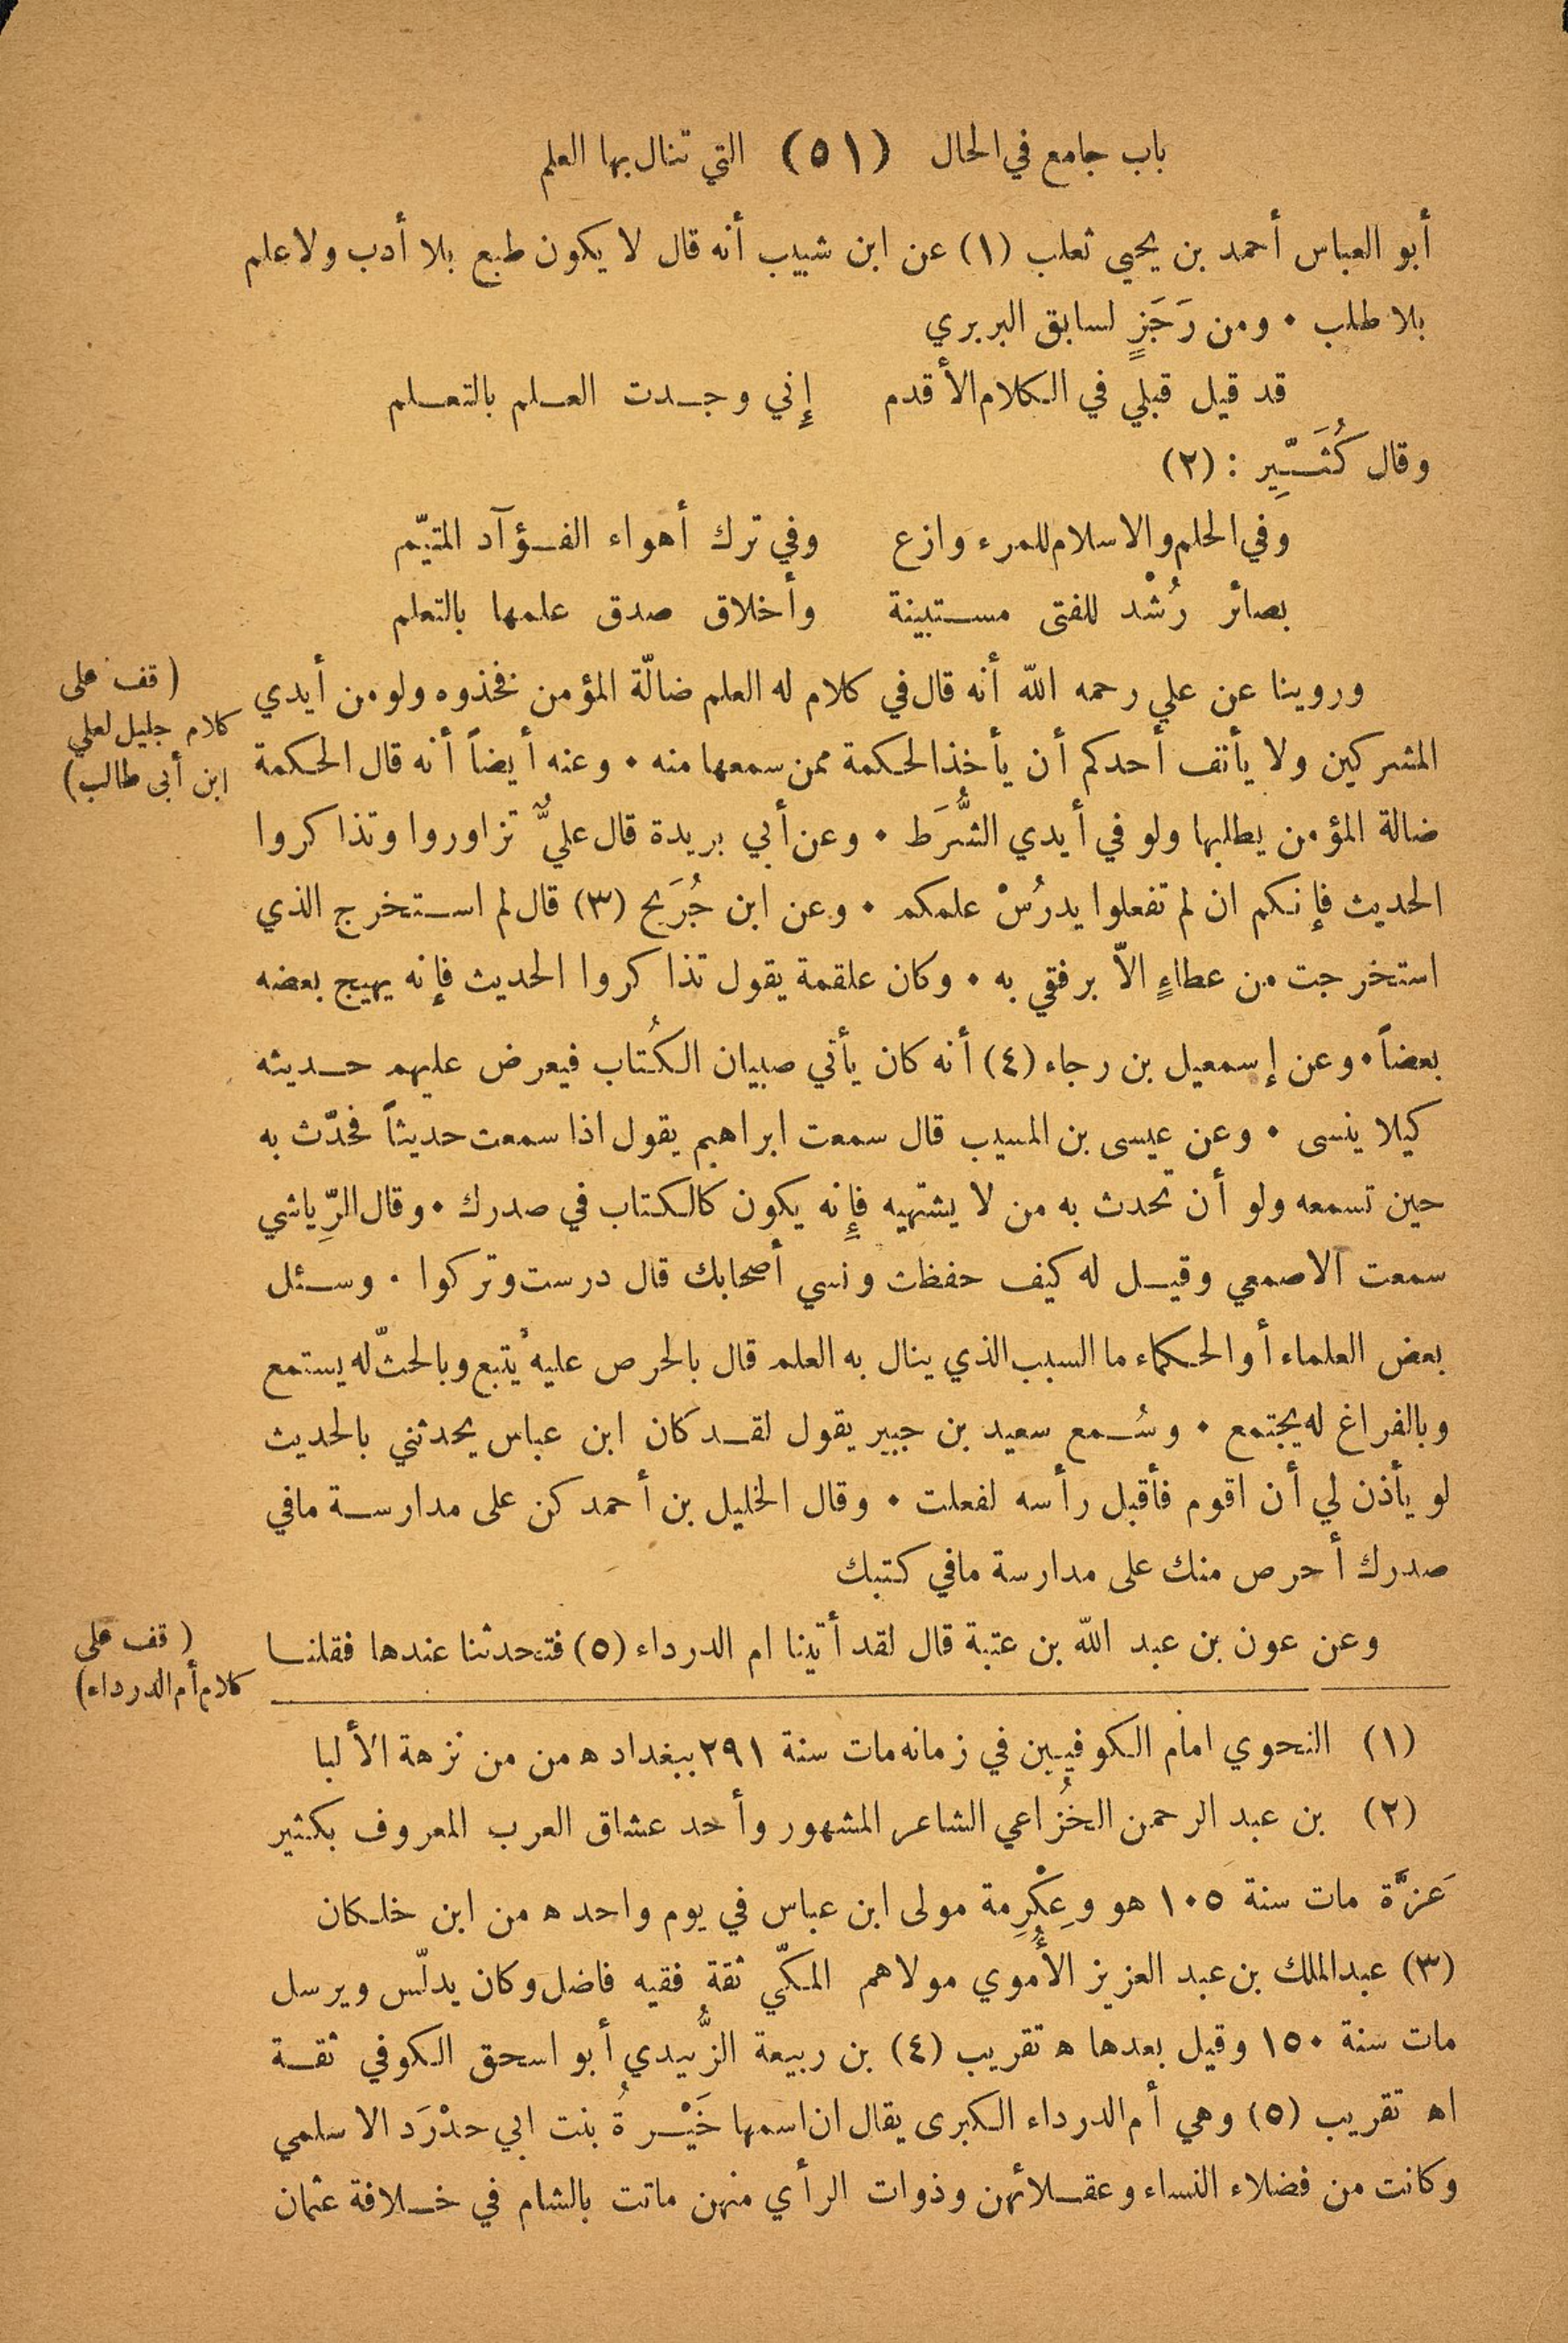 باب جامع في الحال (٥١) التي تنال بها العلم
أبو العباس أحمد بن يحيى ثعلب (١) عن ابن شبيب أنه قال لا يكون طبع بلا أدب ولا علم
بلا طلب • ومن رَجَزٍ لسابق البربري
قد قيل قبلي في الكلام الأقدم إِني وجدت العلم بالتعلم
وقال كُثَيِّر : (٢)
وفي الحلم والاسلام للمرء وازع وفي ترك أهواء الفؤآد المتيّم
بصائر رُشْد للفتى مستبينة وأخلاق صدق علمها بالتعلم
وروينا عن علي رحمه الله أنه قال في كلام له العلم ضالّة المؤمن فخذوه ولو من أيدي
(قف على
كلام جليل لعلي
ابن أبى طالب)
المشركين ولا يأنف أحدكم أن يأخذ الحكمة ممن سمعها منه • وعنه أيضاً أنه قال الحكمة
ضالة المؤمن يطلبها ولو في أيدي الشُّرَط • وعن أبي بريدة قال عليٌّ تزاوروا وتذاكروا
الحديث فإنكم ان لم تفعلوا يدرُسْ علمكم • وعن ابن جُرَيج (٣) قال لم استخرج الذي
استخرجت من عطاءٍ الاّ برفقي به • وكان علقمة يقول تذاكروا الحديث فإنه يهيج بعضه
بعضاً • وعن إسمعيل بن رجاء (٤) أنه كان يأتي صبيان الكُتاب فيعرض عليهم حديثه
كيلا ينسى • وعن عيسى بن المسيب قال سمعت ابراهيم يقول اذا سمعت حديثاً فحدّث به
حين تسمعه ولو أن تحدث به من لا يشتهيه فإِنه يكون كالكتاب في صدرك • وقال الرِّياشي
سمعت الاصمعي وقيل له كيف حفظت ونسي أصحابك قال درست وتركوا • وسئل
بعض العلماء أو الحكماء ما السبب الذي ينال به العلم قال بالحرص عليه يُتبع وبالحثّ له يستمع
وبالفراغ له يجتمع • وسُمع سعيد بن جبير يقول لقد كان ابن عباس يحدثني بالحديث
لو يأذن لي أن اقوم فأقبل رأسه لفعلت • وقال الخليل بن أحمد كن على مدارسة مافي
صدرك أحرص منك على مدارسة مافي كتبك
وعن عون بن عبد الله بن عتبة قال لقد أتينا ام الدرداء (٥) فتحدثنا عندها فقلنا
(قف على
كلام أم الدرداء)
(١) النحوي امام الكوفيين في زمانه مات سنة ٢٩١ ببغداد ه من من نزهة الألبا
(٢) بن عبد الرحمن الخُزاعي الشاعر المشهور وأحد عشاق العرب المعروف بكثير
عَزَّة مات سنة ١٠٥ هو وعِكْرِمة مولى ابن عباس في يوم واحد ه من ابن خلكان
(٣) عبد الملك بن عبد العزيز الأُموي مولاهم المكّي ثقة فقيه فاضل وكان يدلّس ويرسل
مات سنة ١٥٠ وقيل بعدها ه تقريب (٤) بن ربيعة الزُّبيدي أبو اسحق الكوفي ثقة
اه تقريب (٥) وهي أم الدرداء الكبرى يقال ان اسمها خَيْرةُ بنت ابي حدْرَد الاسلمي
وكانت من فضلاء النساء وعقلائهن وذوات الرأي منهن ماتت بالشام في خلافة عثمان